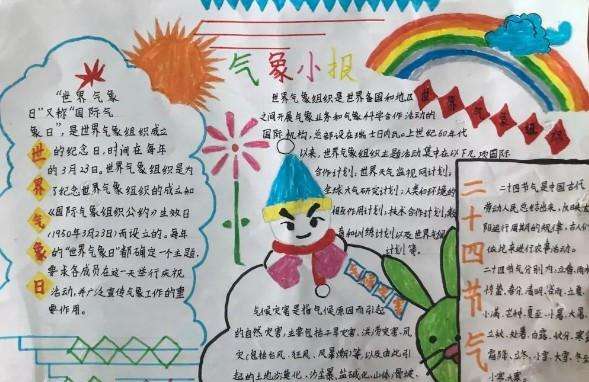 气象小报
世界气象日
"世界气象
日"又称"国际气
象日",是世界气象组织成立
的纪念日,时间在每年
的3月23日。世界气象组织是为
了纪念世界气象组织的成立和
《国际气象组织公约》生效日
(1950年3月23日)而设立的。每年
的"世界气象日"都确定一个主题,
要求各成员在这一天举行庆祝
活动,并广泛宣传气象工作的重
要作用。
世界气象组织
世界气象组织是世界各国和地区
之间开展气象业务和气象科学合作活动的
国际机构,总部设在瑞士日内瓦。上世纪80年代
以来,世界气象组织主题活动集中在以下几项国际
合作计划,世界天气监视网计划,
全球大气研究计划;人类和环境的
相互作用计划;技术合作计划;教
育和训练计划以及世界气候
计划等。
气象灾害
气候灾害是指气候原因而引起
的自然灾害,主要包括干旱灾害、洪涝灾害、风
灾(包括台风、狂风、风暴潮)等,以及由此引
起的土地沙漠化、沙尘暴、盐碱化、山体滑坡、
二十四节气
二十四节气是中国古代
劳动人民总结出来,反映太
阳运行周期的规律,古人们
依此来进行农事活动。
二十四节气分别为:立春、雨水
惊蛰、春分、清明、谷雨、立夏、
小满、芒种、夏至、小暑、大暑、
立秋、处暑、白露、秋分、寒露
霜降、立冬、小雪、大雪、冬至
小寒、大寒